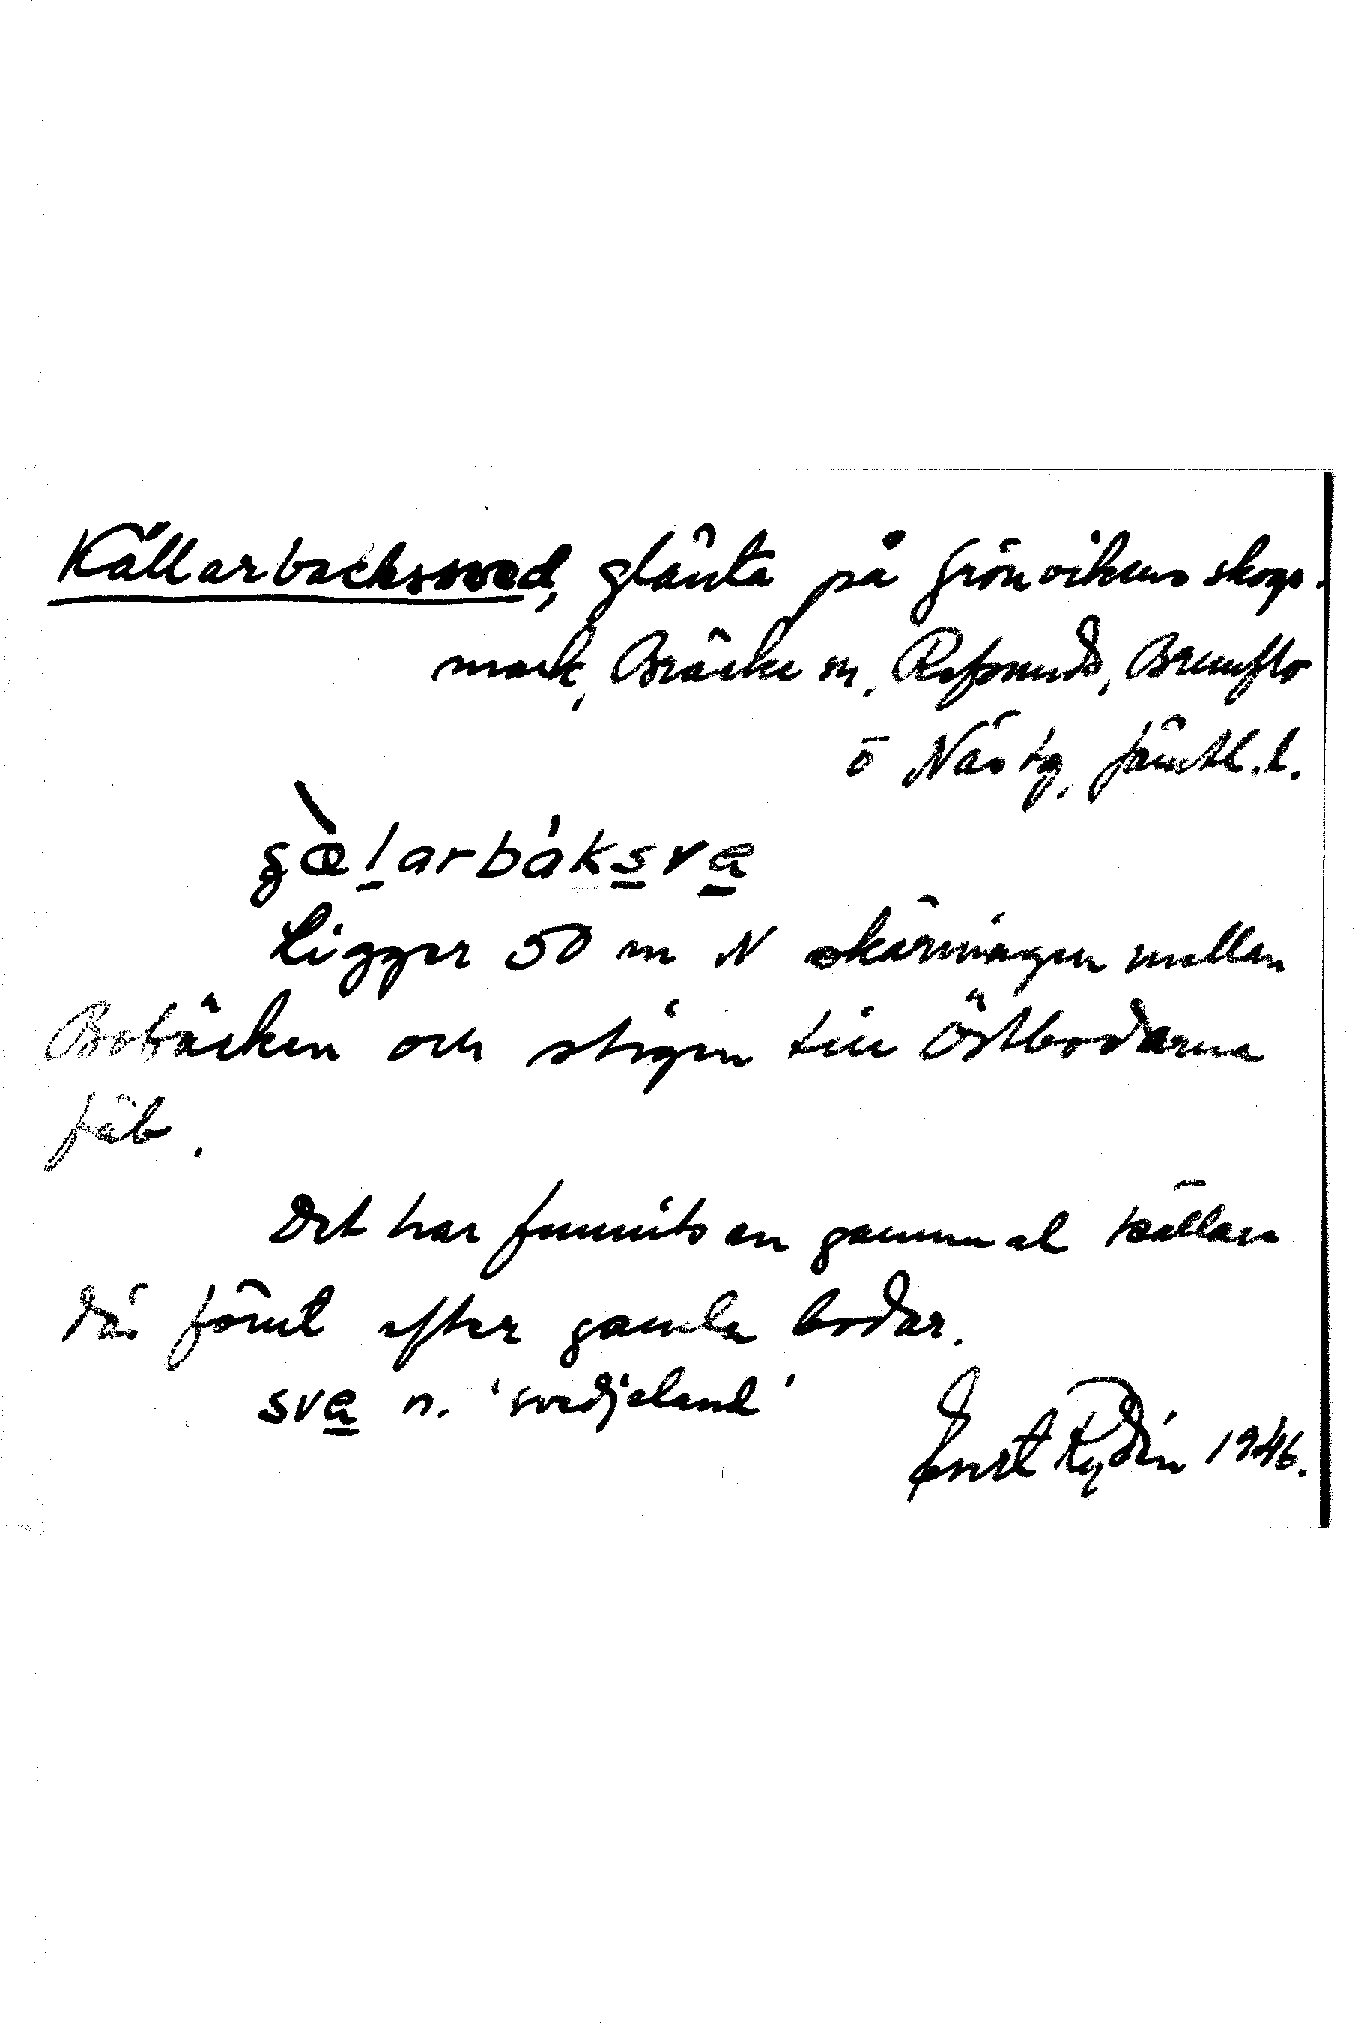 Källarbackssved, glänta på Grönvikens skogs-
mark, Bräcke sn, Refsunds, Brunflo
o Näs tg, Jämtl. l.
ʂæ̀larbáksva
Ligger 50 m N skärningen mellan
Bobäcken och stigen till Östbodarna
fäb.
Det har funnits en gammal källare
där förut efter gamla bodar.
sva n. 'svedjeland'
Ernst Rydin 1946.